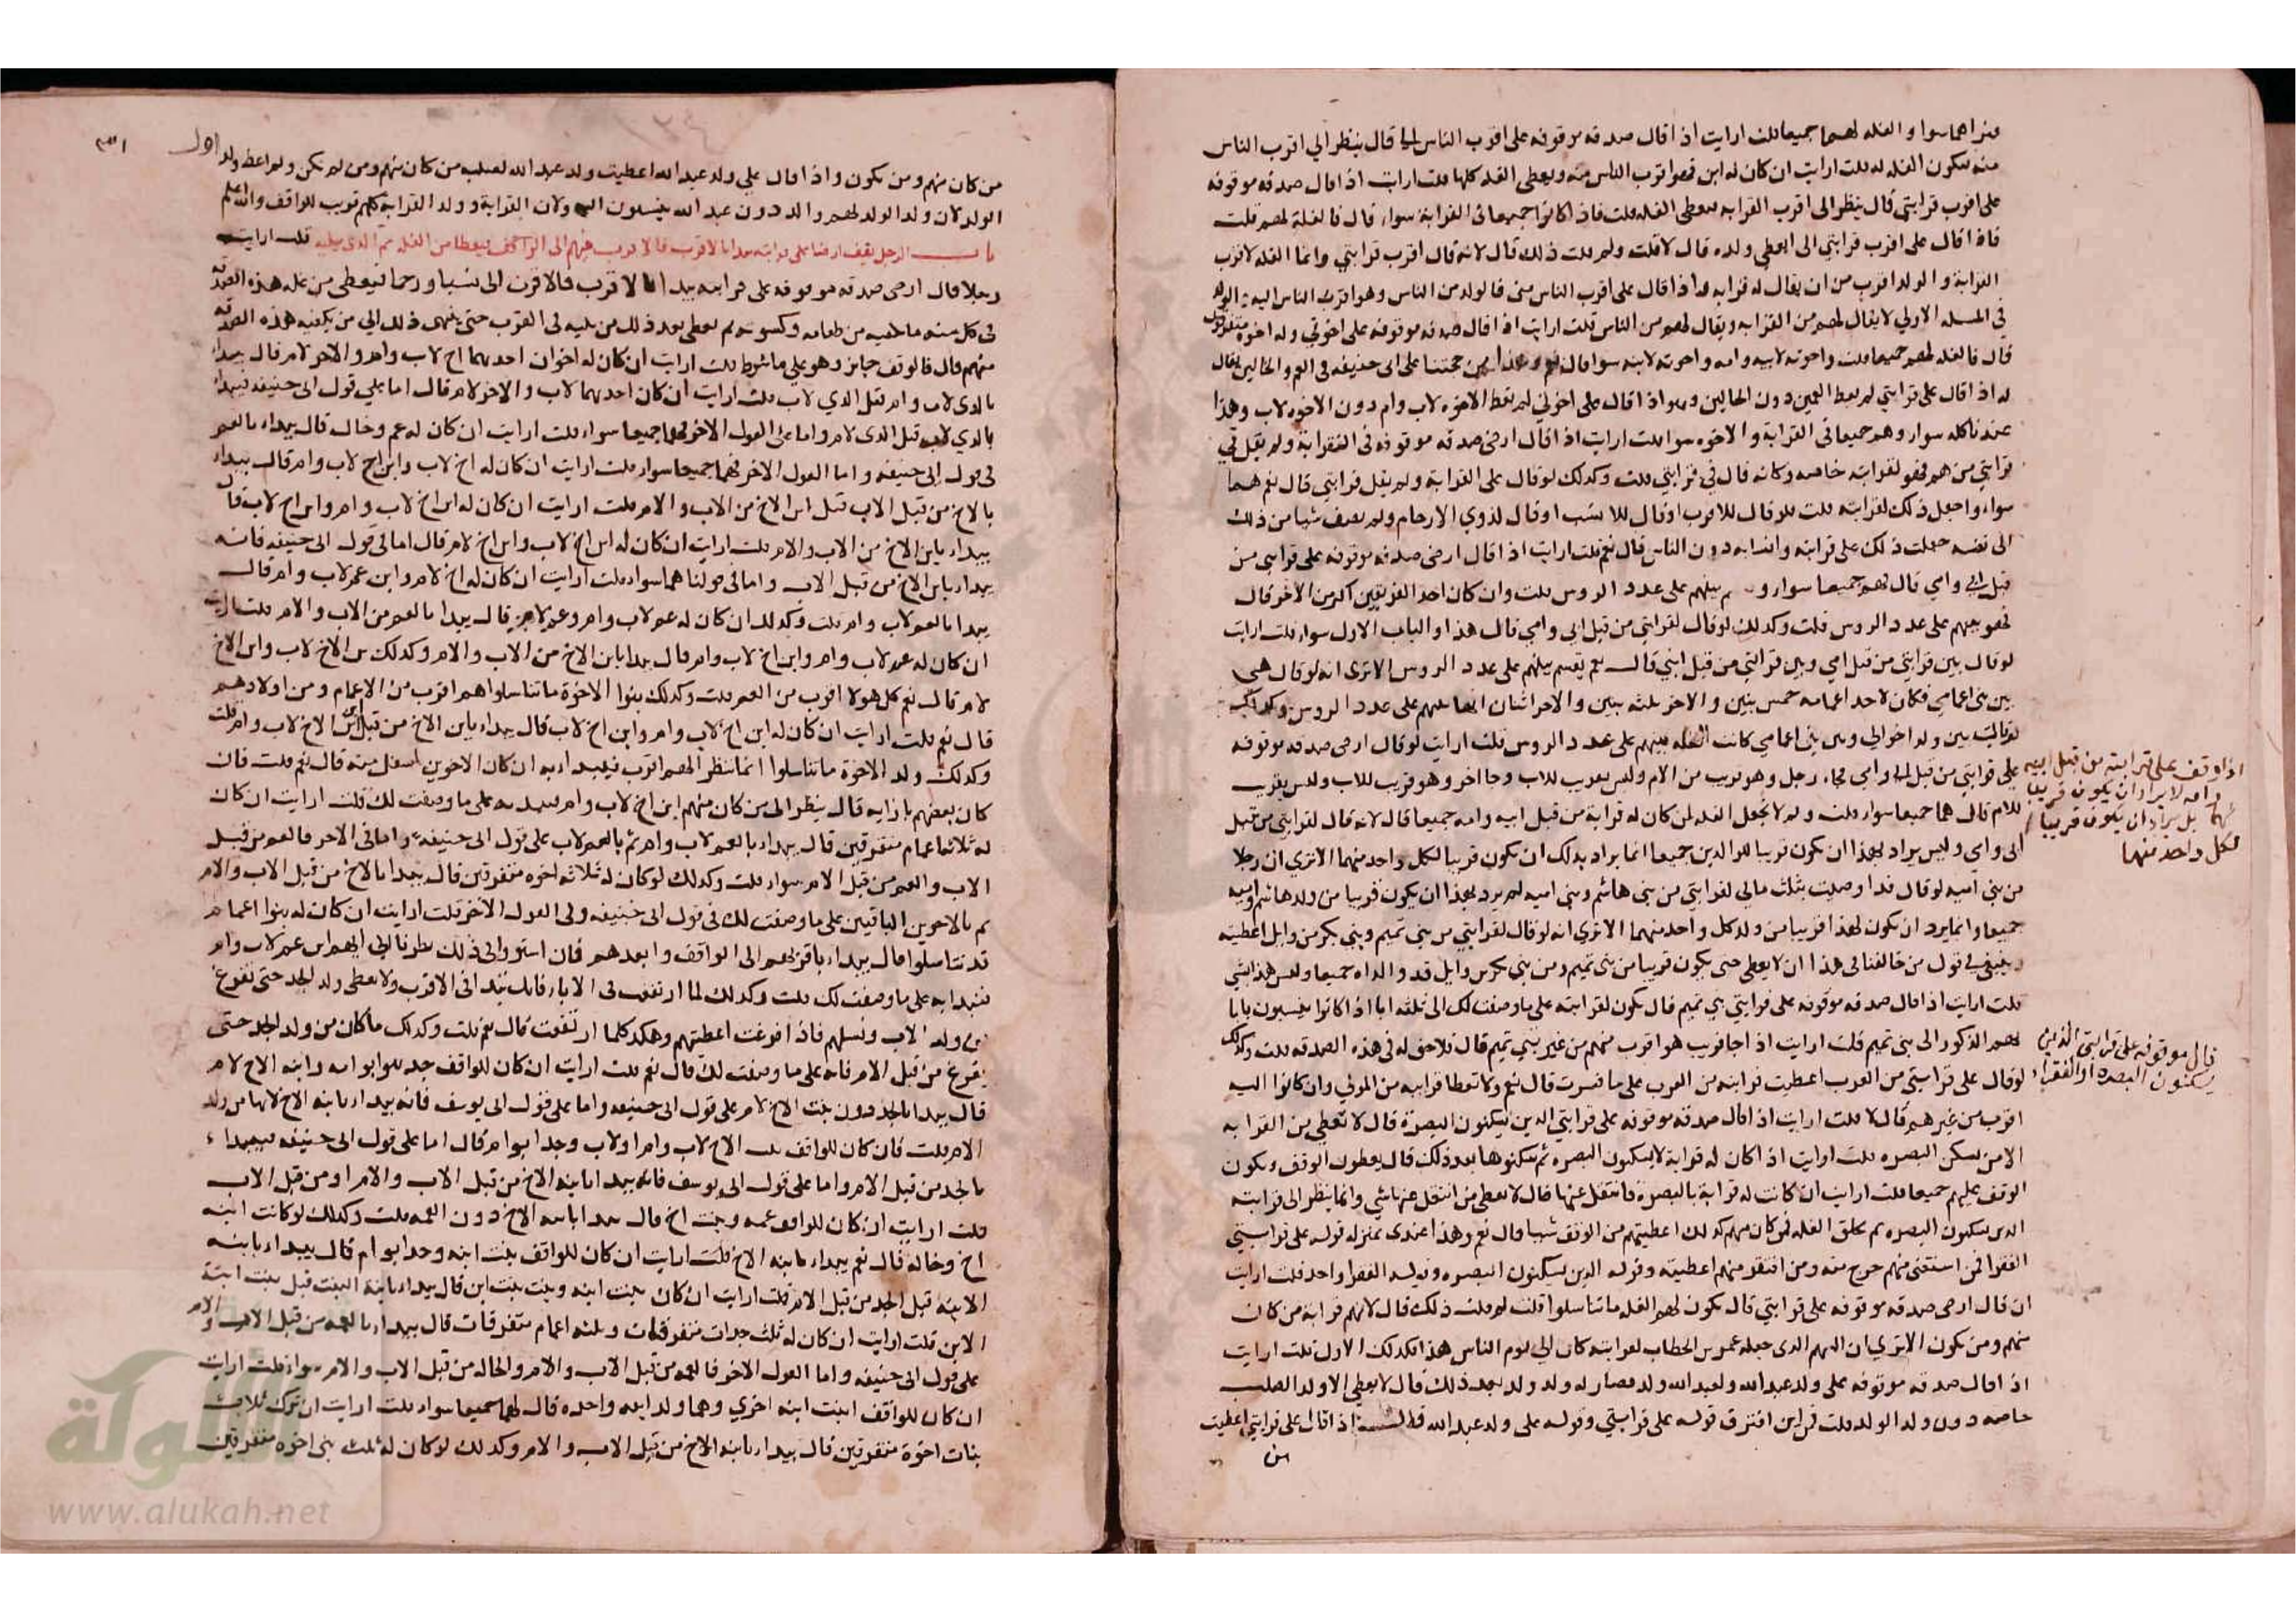 فنراهما سوا والغله لهما جميعا قلت ارايت اذا قال صدقه موقوفه على اقرب الناس الي قال ينظر الي اقرب الناس
منه فتكون الغله له قلت ارايت ان كان له ابن فهو اقرب الناس منه ويعطى الغله كلها قلت ارايت اذا قال صدقه موقوفه
على اقرب قرابتي قال ينظر الى اقرب القرابه فيعطى الغله قلت فاذا كانوا جميعا في القرابة سواء قال فالغلة لهم قلت
فاذا قال على اقرب قرابتي الى ايعطى ولده قال لا قلت ولم قلت ذلك قال لانه قال اقرب قرابتي وانما الغله لاقرب
القرابة والولد اقرب من ان يقال له قرابه واذا قال على اقرب الناس مني فالولد من الناس وهو اقرب الناس اليه
في المسله الاولي لا يقال لهم من القرابه ويقال لهم من الناس قلت ارايت اذا قال صدقه موقوفه على اخوتي وله اخوة متفرقون
قال فالغله لهم جميعا قلت واخوته لابيه وامه واخوته لابيه سوا قال نعم وهذا من حجتنا على ابي حنيفه في العم والخالين يقال
له اذا قال على قرابتي لم يعط العمين دون الخالين وهو اذا قال على اخوتي لم يعط الاخوه لاب وام دون الاخوه لاب وهذا
عندنا كله سواء وهم جميعا في القرابة والاخوه سوا قلت ارايت اذا قال ارضي صدقه موقوفه في القرابة ولم يقل في
قرابتي من هم فهو لقرابته خاصه وكانه قال في قرابتي قلت وكذلك لو قال على القرابة ولم يقل قرابتي قال نعم هما
سواء واجعل ذلك لقرابته قلت فلو قال للاقرب او قال للانسب او قال لذوي الارحام ولم يضف شيا من ذلك
الى نفسه جعلت ذلك على قرابته وانسابه دون الناس قال نعم قلت ارايت اذا قال ارضي صدقه موقوفه على قرابتي من
قبل ابي وامي قال لهم جميعا سواء بينهم على عدد الروس قلت وان كان احد الفريقين اكثر من الاخر قال
فهو بينهم على عدد الروس قلت وكذلك لو قال لقرابتي من قبل ابي وامي قال هذا والباب الاول سواء قلت ارايت
لو قال بين قرابتي من قبل امي وبين قرابتي من قبل ابي قال نعم يقسم بينهم على عدد الروس الا ترى انه لو قال هي
بين بني اعمامي فكان لاحد اعمامه خمس بنين والاخر ثلثه بنين والاخر اثنان انها بينهم على عدد الروس وكذلك
لو قال بين ولد اخوالي وبين بني اعمامي كانت الغله بينهم على عدد الروس قلت ارايت لو قال ارضي صدقه موقوفه
على قرابتي من قبل ابي وامي فجاء رجل وهو قريب من الام وليس بقريب للاب وجا اخر وهو قريب للاب وليس بقريب
للام قال هما جميعا سواء قلت ولم لا تجعل الغله لمن كان له قرابة من قبل ابيه وامه جميعا قال لانه قال لقرابتي من قبل
ابي وامي وليس يراد بهذا ان يكون قريبا للوالدين جميعا انما يراد بذلك ان يكون قريبا لكل واحد منهما الا ترى ان رجلا
من بني اميه لو قال قد اوصيت بثلث مالي لقرابتي من بني هاشم وبني اميه لم يرد بهذا ان يكون قريبا من ولد هاشم واميه
جميعا وانما يرد ان يكون لهذا قريبا من ولد كل واحد منهما الا ترى انه لو قال لقرابتي من بني تميم وبني بكر من وايل اعطيته
وينبغي في قول من خالفنا في هذا ان لا يعطى حتى يكون قريبا من بني تميم ومن بني بكر من وايل قد والداه جميعا وليس هذا بشي
قلت ارايت اذا قال صدقه موقوفه على قرابتي بني تميم قال يكون لقرابته على ما وصفت لك الى ثلثه ابا اذا كانوا ينسبون بابا
بهم الذكور الى بني تميم قلت ارايت اذا جا قريب هو اقرب منهم من غير بني تميم قال فلا حق له في هذه الصدقه قلت وكذلك
لو قال على قرابتي من العرب اعطيت قرابته من العرب على ما فسرت قال نعم ولا تعط قرابته من الموالي وان كانوا اليه
اقرب من غيرهم قال لا قلت ارايت اذا قال صدقه موقوفه على قرابتي الذين يسكنون البصرة قال لا تعطى من القرابه
الا من سكن البصره قلت ارايت اذا كان له قرابة لا يسكنون البصره ثم سكنوها بعد ذلك قال يعطون الوقف ويكون
الوقف عليهم جميعا قلت ارايت ان كانت له قرابة بالبصره فانتقل عنها قال لا نعطى من انتقل عنها شي وانما ينظر الى قرابته
الذين يسكنون البصره ثم تخلق الغله فمن كان منهم كذلك اعطيتهم من الوقف شيا قال نعم وهذا عندي بمنزلة قوله على قرابتي
الفقرا فمن استغنى منهم خرج منه ومن افتقر منهم اعطيته وقوله الذين يسكنون البصره وقوله الفقرا واحد قلت ارايت
ان قال ارضي صدقه موقوفه على قرابتي قال تكون لهم الغله ما تناسلوا قلت لم قلت ذلك قال لانهم قرابة من كان
منهم ومن يكون الا ترى ان السهم الذي جعله عمر بن الخطاب لقرابته كان الي يوم الناس هذا فكذلك الاول قلت ارايت
اذا قال صدقه موقوفه على ولد عبد الله ولعبد الله ولد فصار له ولد ولد بعد ذلك قال لا يعطى الا ولد الصلب
خاصه دون ولد الولد قلت فمن اين افترق قوله على قرابتي وقوله على ولد عبد الله قال اذا قال على قرابتي اعطيت
من
اذا وقف على قرابته من قبل ابيه
وامه لا يراد ان يكون قريبا
لهما بل يراد ان يكون قريبا
لكل واحد منهما
قال موقوفه على قرابتي الذين
يسكنون البصره او الفقراء
اول
من كان منهم ومن يكون واذا قال علي ولد عبد الله اعطيت ولد عبد الله لصلبه من كان منهم ومن لم يكن ولم اعط ولد
الولد لان ولد الولد لهم والد دون عبد الله ينسبون اليه ولان القرابة وولد القرابة كلهم قريب للواقف والله اعلم
باب الرجل يقف ارضا على قرابته يبدا بالاقرب فالاقرب منهم الى الواقف فيعطا من الغله ثم الذي يليه قلت ارايت
رجلا قال ارضي صدقه موقوفه على قرابته يبدا بالاقرب فالاقرب الى نسبا ورحما فيعطى من غله هذه الصدقه
في كل سنه ما يكفيه من طعامه وكسوته ثم يعطى بعد ذلك من يليه في القرب حتى ينتهى ذلك الي من يكفيه هذه الصدقه
منهم قال فالوقف جايز وهو على ما شرط قلت ارايت ان كان له اخوان احدهما اخ لاب وام والاخر لام قال يبدا
بالذي لاب وام قبل الذي لاب قلت ارايت ان كان احدهما لاب والاخر لام قال اما على قول ابي حنيفه فيبدا
بالذي لاب قبل الذي لام واما على القول الاخر فهما جميعا سواء قلت ارايت ان كان له عم وخال قال يبدا بالعم
في قول ابي حنيفه واما القول الاخر فهما جميعا سواء قلت ارايت ان كان له اخ لاب وابن اخ لاب وام قال يبدا
بالاخ من قبل الاب قبل ابن الاخ من الاب والام قلت ارايت ان كان له ابن اخ لاب وام وابن اخ لاب قال
يبدا بابن الاخ من الاب والام قلت ارايت ان كان له ابن اخ لاب وابن اخ لام قال اما في قول ابي حنيفه فانه
يبدا بابن الاخ من قبل الاب واما في قولنا هما سواء قلت ارايت ان كان له اخ لام وابن عم لاب وام قال
يبدا بالعم لاب وام قلت وكذلك ان كان له عم لاب وام وعم لاب قال يبدا بالعم من الاب والام قلت ارايت
ان كان له عم لاب وام وابن اخ لاب وام قال يبدا بابن الاخ من الاب والام وكذلك بن الاخ لاب وابن الاخ
لام قال نعم كل هولا اقرب من العم قلت وكذلك بنوا الاخوة ما تناسلوا هم اقرب من الاعمام ومن اولادهم
قال نعم قلت ارايت ان كان له ابن اخ لاب وام وابن اخ لاب قال يبداء بابن الاخ من قبل ابن الاخ لاب وام قلت
وكذلك ولد الاخوة ما تناسلوا انما ننظر الى اقرب فيبدا به ان كان الاخوين اسفل منه قال نعم قلت فان
كان بعضهم بازايه قال ينظر الى من كان منهم ابن اخ لاب وام فيبد به على ما وصفت لك قلت ارايت ان كان
له ثلاثة اعمام متفرقين قال يبداء بالعم لاب وام ثم بالعم لاب على قول ابي حنيفه واما في الاخر فالعم من قبل
الاب والعم من قبل الام سواء قلت وكذلك لو كان له ثلاثه اخوه متفرقين قال يبدا بالاخ من قبل الاب والام
ثم بالاخوين الباقيين على ما وصفت لك في قول ابي حنيفه وفي القول الاخر قلت ارايت ان كان له بنوا اعمام
قد تناسلوا قال يبداء باقربهم الى الواقف وابعدهم فان استووا في ذلك نظرنا الى ايهم ابن عم لاب وام
فنبدا به على ما وصفت لك قلت وكذلك لما ارتفعت في الاباء فانك تبدا في الاقرب ولا يعطى ولد الجد حتى تفرغ
من ولد الاب ونسلهم فاذا فرغت اعطيتهم وهكذا كلما ارتفعت قال نعم قلت وكذلك ما كان من ولد الجد حتى
يفرغ من قبل الام فانه على ما وصفت لك قال نعم قلت ارايت ان كان للواقف جد هو ابو امه وابنه الاخ لام
قال يبدا بالجد دون بنت الاخ لام على قول ابي حنيفه واما على قول ابي يوسف فانه يبدا بابنه الاخ لانها من ولد
الام قلت فان كان للواقف بنت الاخ لاب وام او لاب وجد ابو ام قال اما على قول ابي حنيفه فيبداء
بالجد من قبل الام واما على قول ابي يوسف فانه يبدا بابنه الاخ من قبل الاب والام او من قبل الاب
قلت ارايت ان كان للواقف عمه وبنت اخ قال يبدا بابنه الاخ دون العمه قلت وكذلك لو كانت ابنه
اخ وخاله قال نعم يبداء بابنه الاخ قلت ارايت ان كان للواقف بنت ابنه وجد ابو ام قال يبداء بابنه
الابنه قبل الجد من قبل الام قلت ارايت ان كان بنت ابنه وبنت بنت ابن قال يبداء بابنة البنت قبل بنت ابنة
الابن قلت ارايت ان كان له ثلث جدات متفرقات وثلثه اعمام متفرقات قال يبداء بالعمه من قبل الاب والام
على قول ابي حنيفه واما القول الاخر فالعمه من قبل الاب والام والخاله من قبل الاب والام سواء قلت ارايت
ان كان للواقف ابنت ابنه اخري وهما ولد ابنه واحده قال لهما جميعا سواء قلت ارايت ان ترك ثلاث
بنات اخوة متفرقين قال يبداء بابنه الاخ من قبل الاب والام وكذلك لو كان له ثلث بني اخوه متفرقين
www.alukah.net
الألوكة